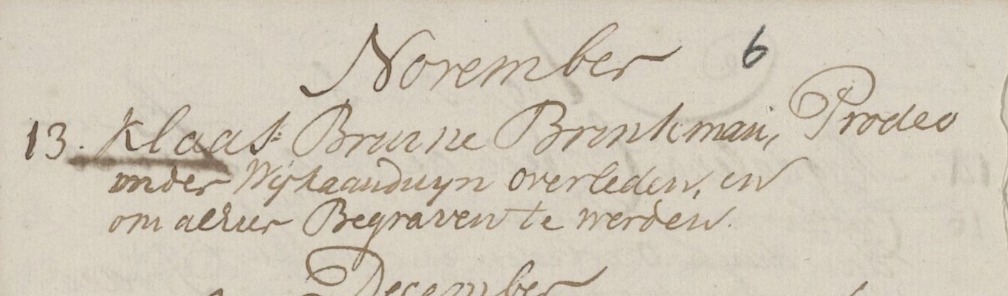 November 6
13. Klaas Bruine Brinkman, Prodeo
onder Wijkaanduyn overleden, en
om alhier Begraven te werden.
December